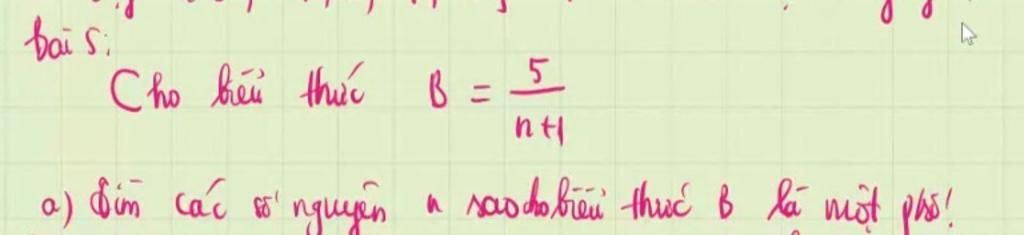 bài 5:
Cho biểu thức B = 5/(n+1)
a) Tìm các số nguyên n sao cho biểu thức B là một phs!